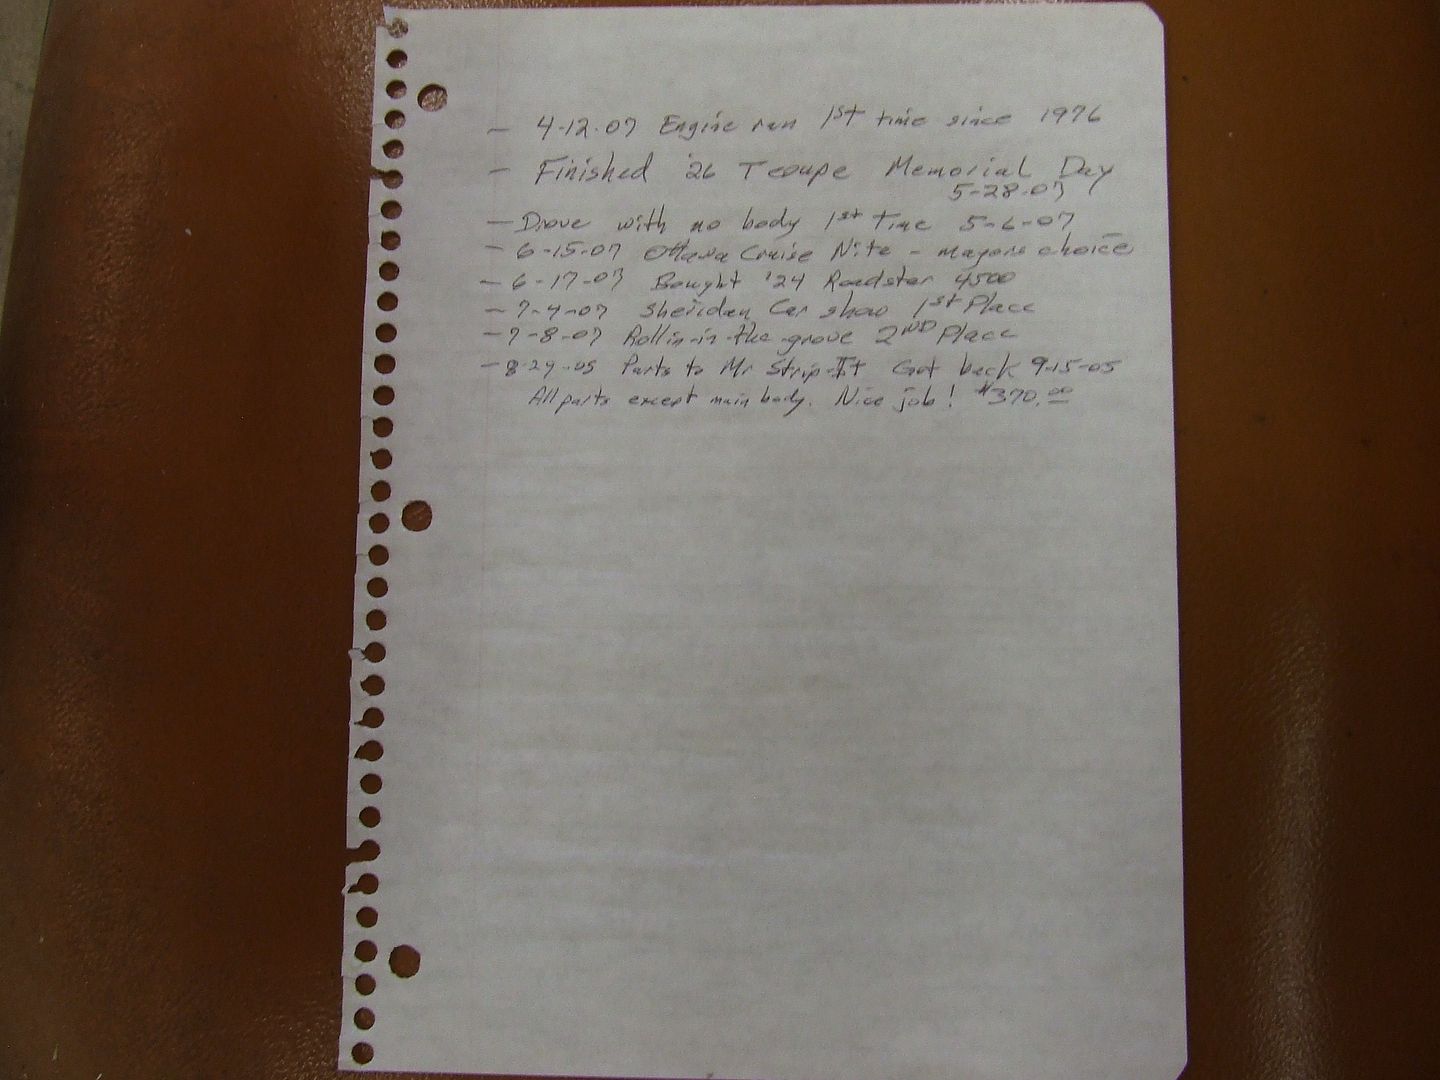 - 4-12-07 Engine ran 1st time since 1976
- Finished '26 T coupe Memorial Day
5-28-07
- Drove with no body 1st Time 5-6-07
- 6-15-07 Ottawa Cruise Nite - mayors choice
- 6-17-07 Bought '24 Roadster 4500
- 7-4-07 Sheridan Car show 1st Place
- 7-8-07 Rollin-in-the-grove 2ND Place
- 8-29-05 Parts to Mr Strip-It Got back 9-15-05
All parts except main body. Nice job! $370.00